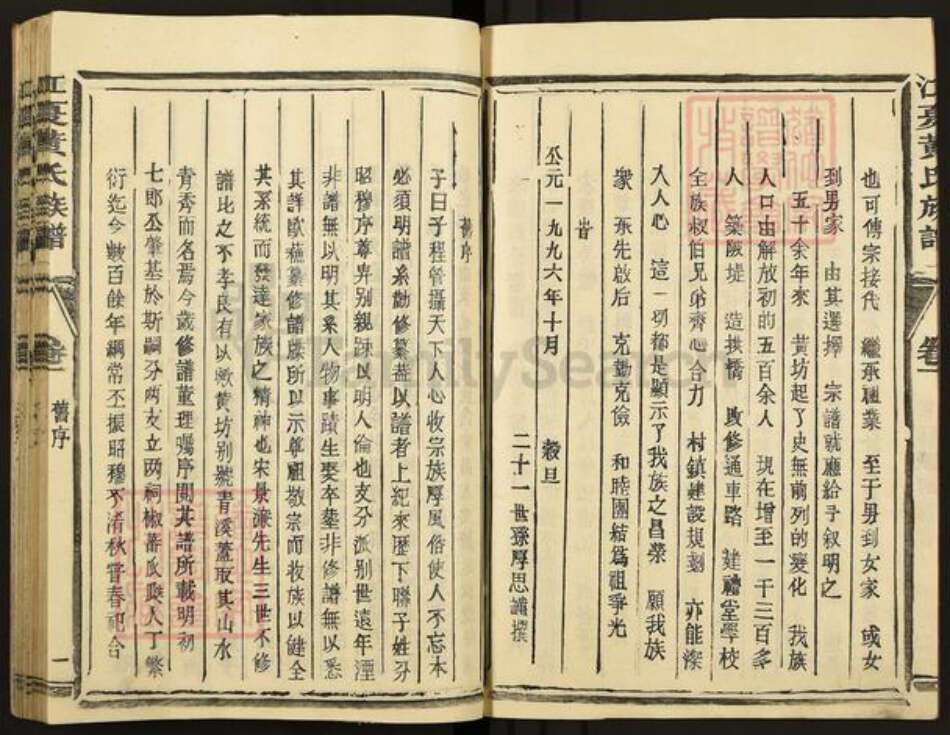 江夏黄氏族譜
卷一
也可傳宗接代 繼承祖業 至于男到女家 或女
到男家 由其選擇 宗譜就應給予叙明之
五十余年來 黄坊起了史無前列的變化 我族
人口由解放初的五百余人 現在增至一千三百多
人 築陂堤 造拱橋 改修通車路 建禮堂學校
全族叔伯兄弟齊心合力 村鎮建設規劃 亦能深
入人心 這一切都是顯示了我族之昌榮 願我族
衆 承先啟后 克勤克儉 和睦團結爲祖爭光
旹
公元一九九六年十月 穀旦
二十一世孫厚思謹撰
舊序
子曰子程管攝天下人心收宗族厚風俗使人不忘本
必須明譜系勤修纂盖以譜者上紀來歷下聯子姓分
昭穆序尊卑别親踈以明人倫也支分派别世遠年湮
非譜無以明其系人物事蹟生娶卒塟非修譜無以悉
其詳歐蘇纂修譜牒所以示尊祖敬宗而收族以健全
其系統而發達家族之精神也宋景濂先生三世不修
譜比之不孝良有以歟黄坊别號青溪蓋取其山水
青秀而名焉今歲修譜董理囑序閲其譜所載明初
七郎公肇基於斯嗣分两支立两祠椒蕃瓜瓞人丁繁
衍迄今數百餘年綱常不振昭穆不淆秋嘗春祀合
江夏黄氏族譜
卷一
舊序
一
FamilySearch